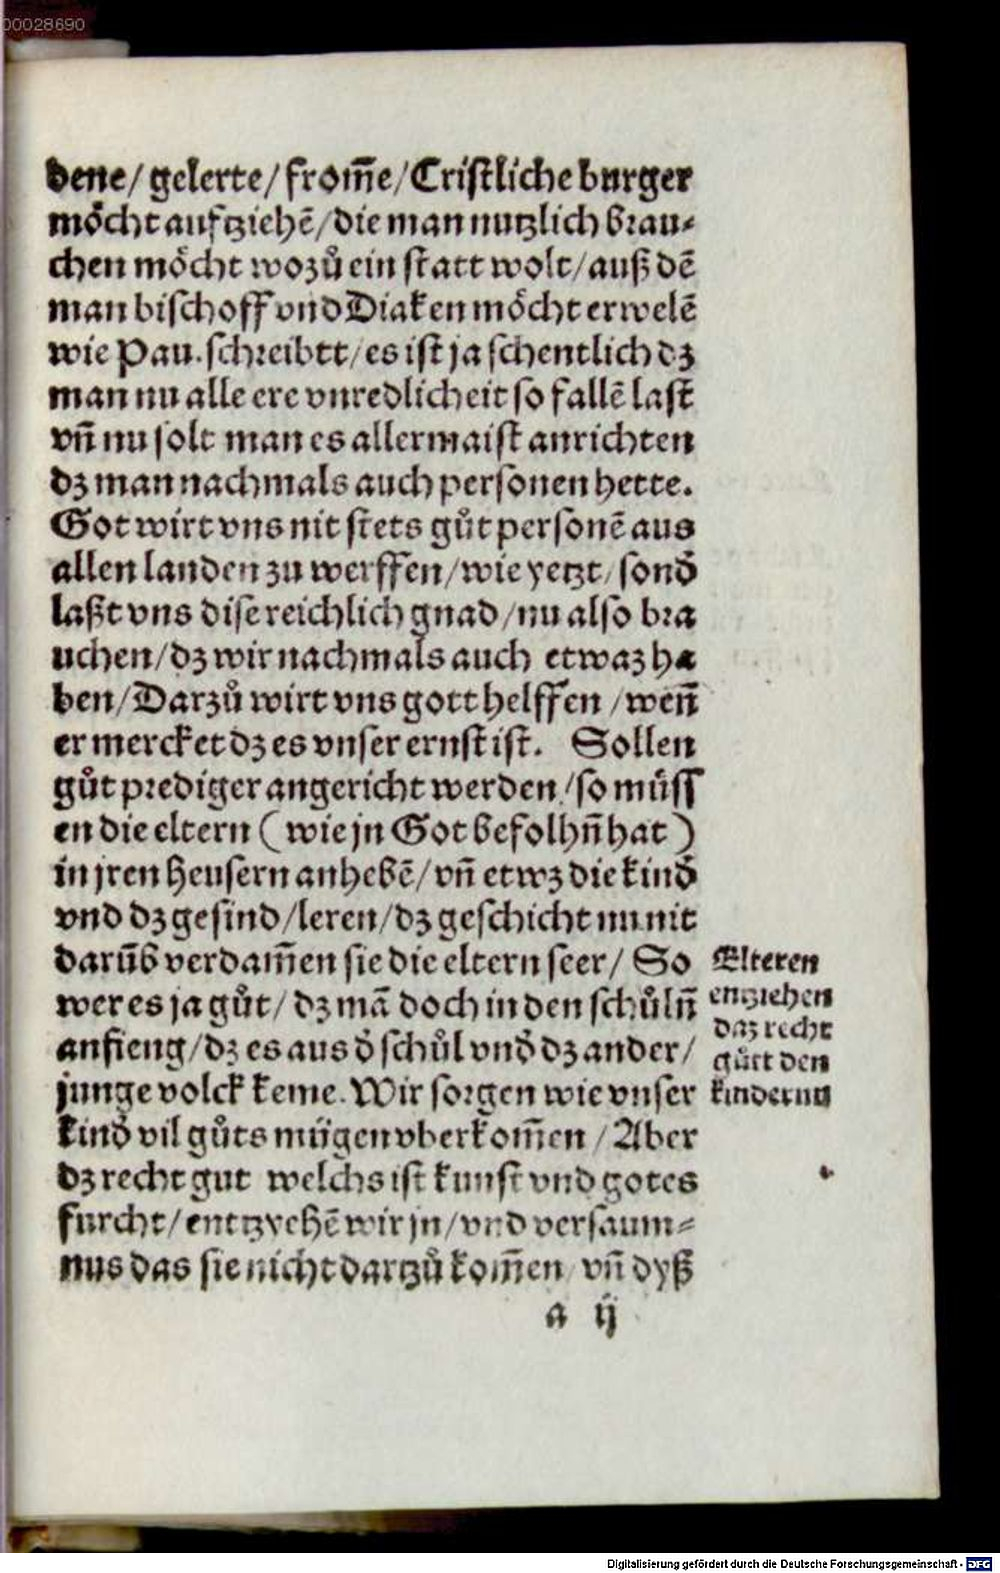 00028690
dene/ gelerte/ from̃e/ Cristliche burger
moͤcht auftziehẽ/ die man nutzlich brau⸗
chen moͤcht wozuͦ ein statt wolt/ auß dẽ
man bischoff vnd Diaken moͤcht erwelẽ
wie Pau. schreibtt/ es ist ja schentlich dz
man nu alle ere vnredlicheit so fallẽ last
vñ nu solt man es allermaist anrichten
dz man nachmals auch personen hette.
Got wirt vns nit stets guͦt personẽ aus
allen landen zu werffen/ wie yetzt/ sond̕
laßt vns dise reichlich gnad/ nu also bra
uchen/ dz wir nachmals auch etwaz ha
ben/ Darzuͦ wirt vns gott helffen/ weñ
er mercket dz es vnser ernst ist. Sollen
guͦt prediger angericht werden/ so muͤss
en die eltern (wie jn Got befolhñ hat)
in jren heusern anhebẽ/ vñ etwz die kind̕
vnd dz gesind/ leren/ dz geschicht nu nit
darũb verdam̃en sie die eltern seer/ So
wer es ja guͦt/ dz mã doch in den schuͦlñ
anfieng/ dz es aus d̕ schuͦl vnd̕ dz ander/
junge volck keme. Wir sorgen wie vnser
kind̕ vil guͦts muͤgen vberkom̃en/ Aber
dz recht gut welchs ist kunst vnd gotes
furcht/ enttzyehẽ wir jn/ vnd versaum⸗
nus das sie nicht dartzuͦ kom̃en/ vñ dyß
Elteren
entziehen
daz recht
guͦtt den
kindernn
a ij
Digitalisierung gefördert durch die Deutsche Forschungsgemeinschaft - DFG